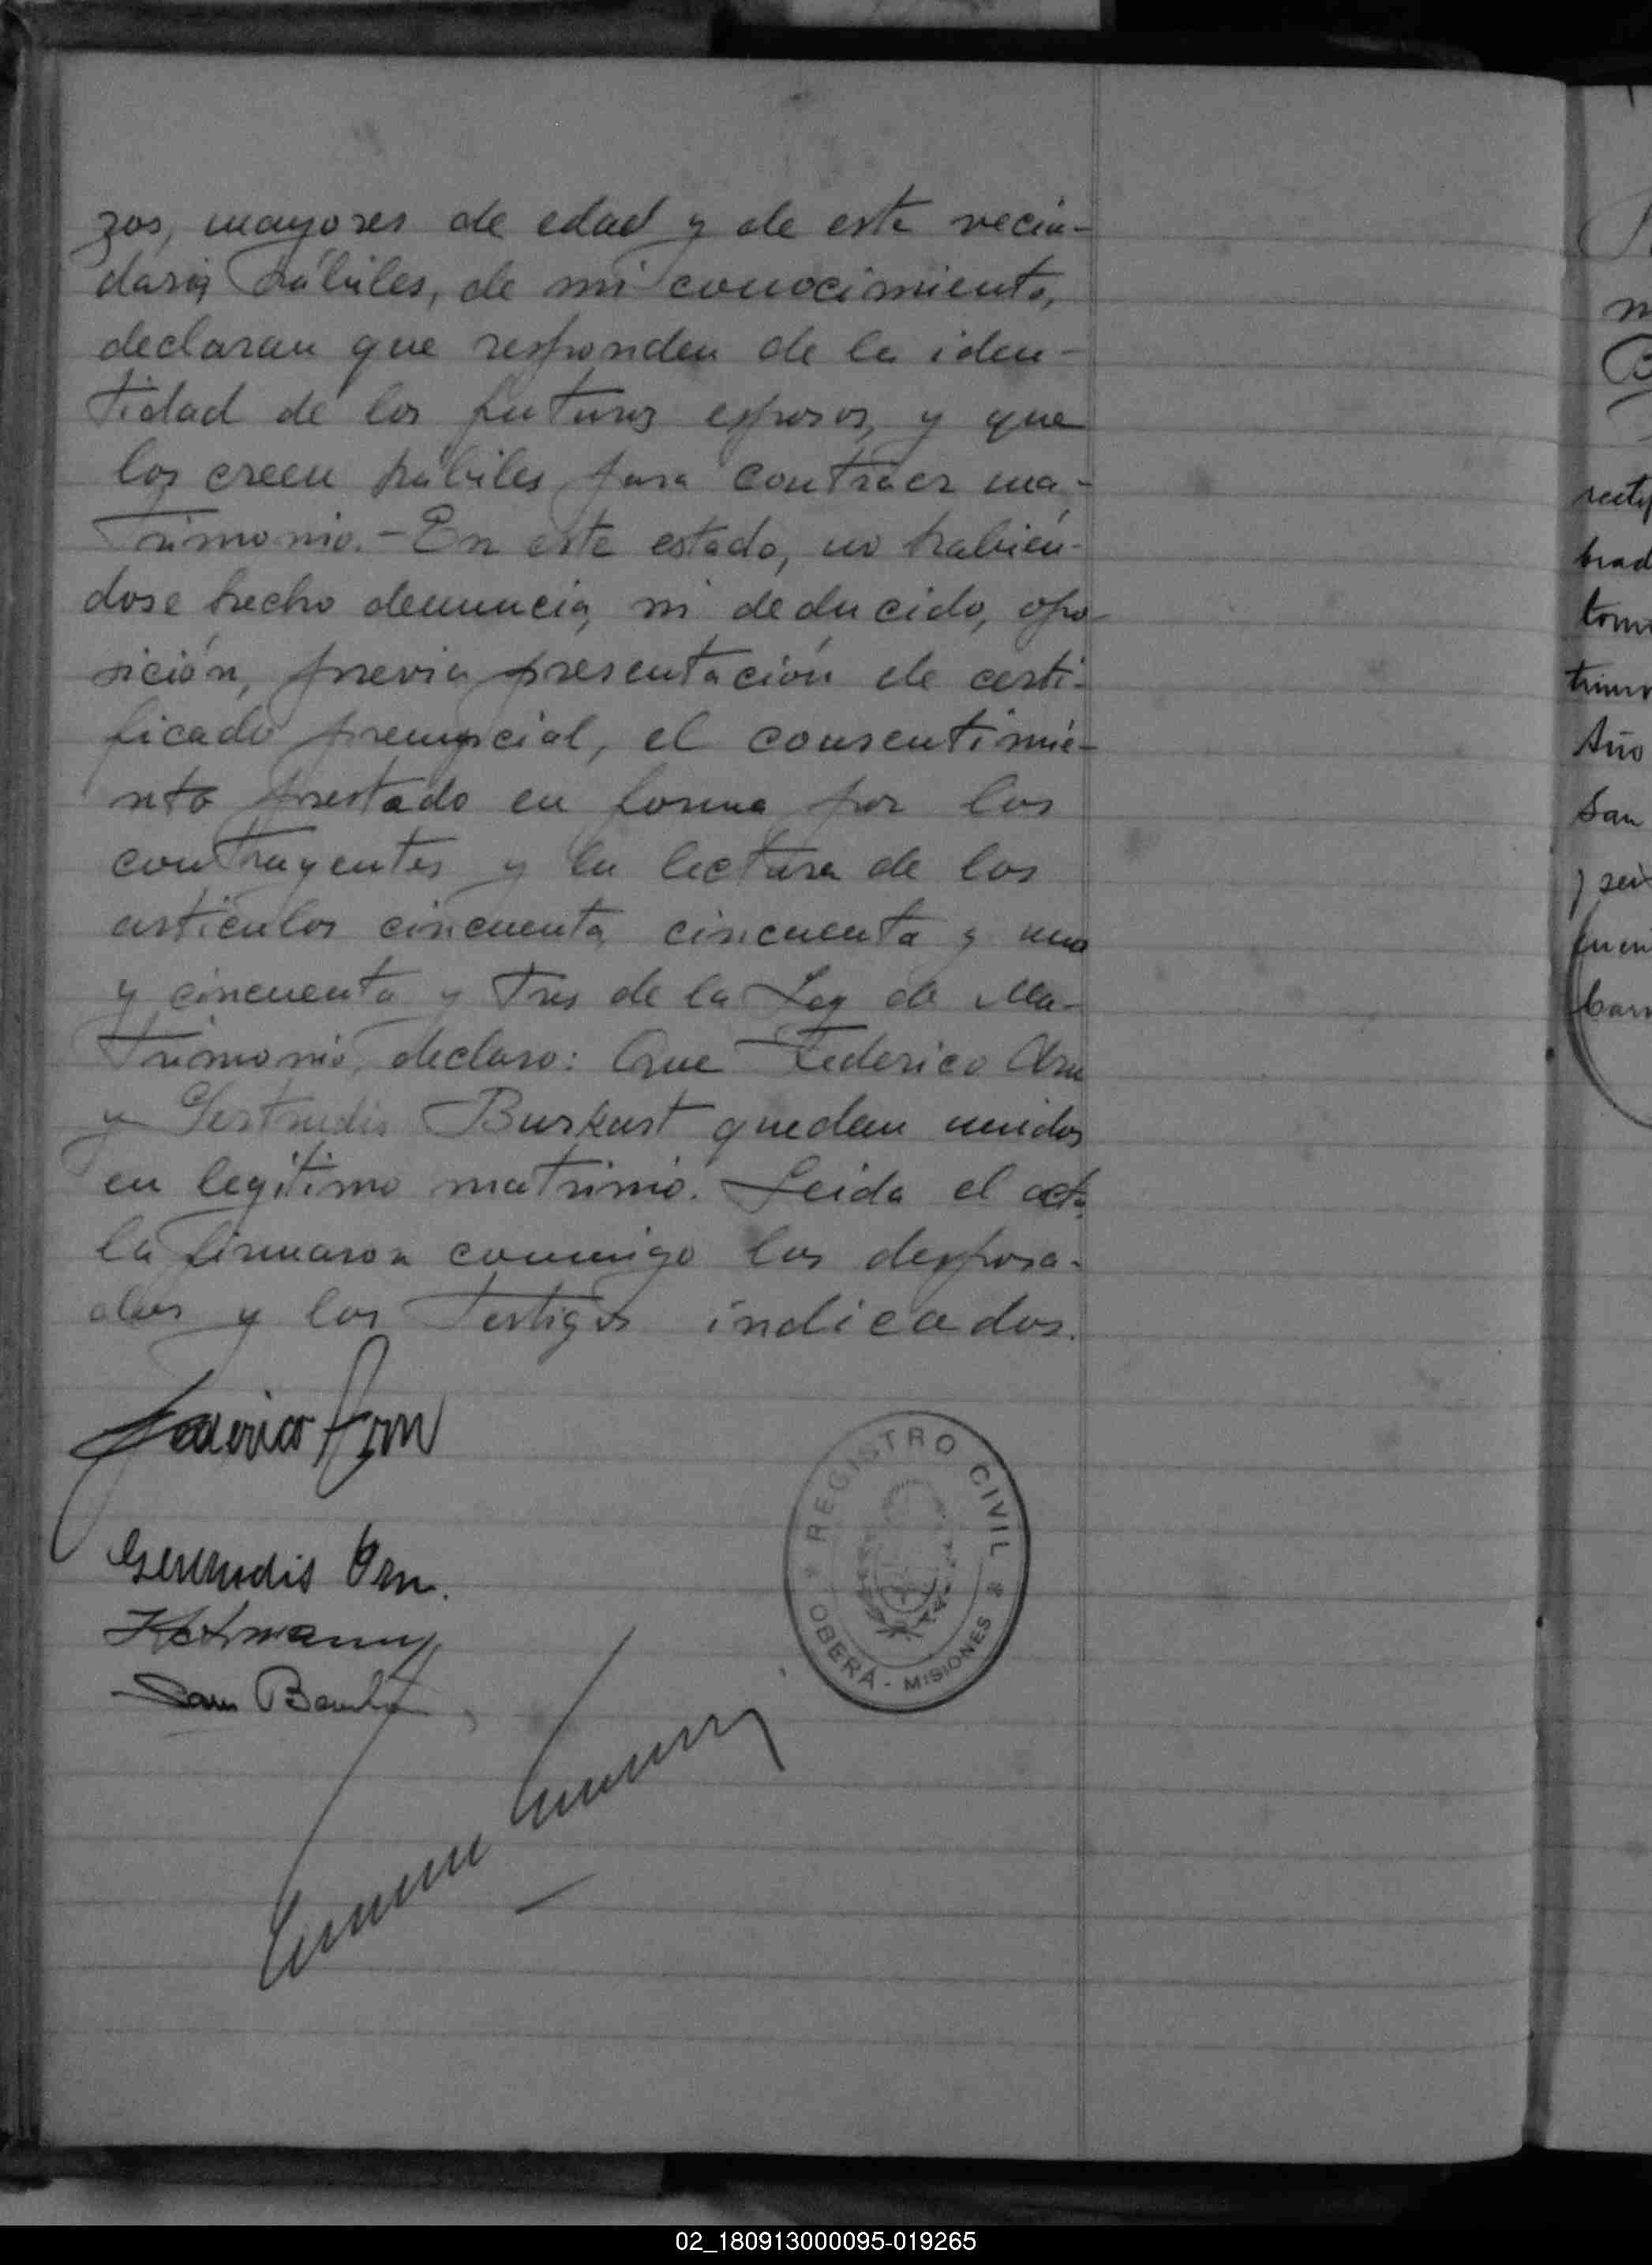 zos, mayores de edad y de este vecin-
dario, hábiles, de mi conocimiento,
declaran que responden de la iden-
tidad de los futuros esposos, y que
los creen hábiles para contraer ma-
trimonio.- En este estado, no habién-
dose hecho denuncia, ni deducido, opo-
sición, previa presentación de certi-
ficado prenupcial, el consentimie-
nto prestado en forma por los
contrayentes y la lectura de los
artículos cincuenta, cincuenta y uno
y cincuenta y tres de la Ley de Ma-
trimonio, declaro: Que Federico Orn
y Gertrudis Burkart quedan unidos
en legítimo matrimio. Leida el acta,
la firmaron conmigo los desposa-
dos y los testigos indicados.
Federico Orn
Gertrudis Orn.
REGISTRO CIVIL
OBERÁ - MISIONES
m
B
brad
Año
San
y seis
02_180913000095-019265